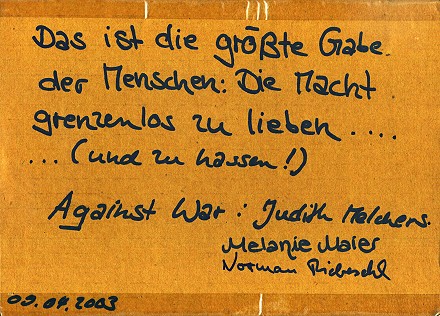 Das ist die größte Gabe
der Menschen: Die Macht
grenzenlos zu lieben ....
... (und zu hassen!)
Against War: Judith Melchers.
Melanie Maier
Norman
09.04.2003